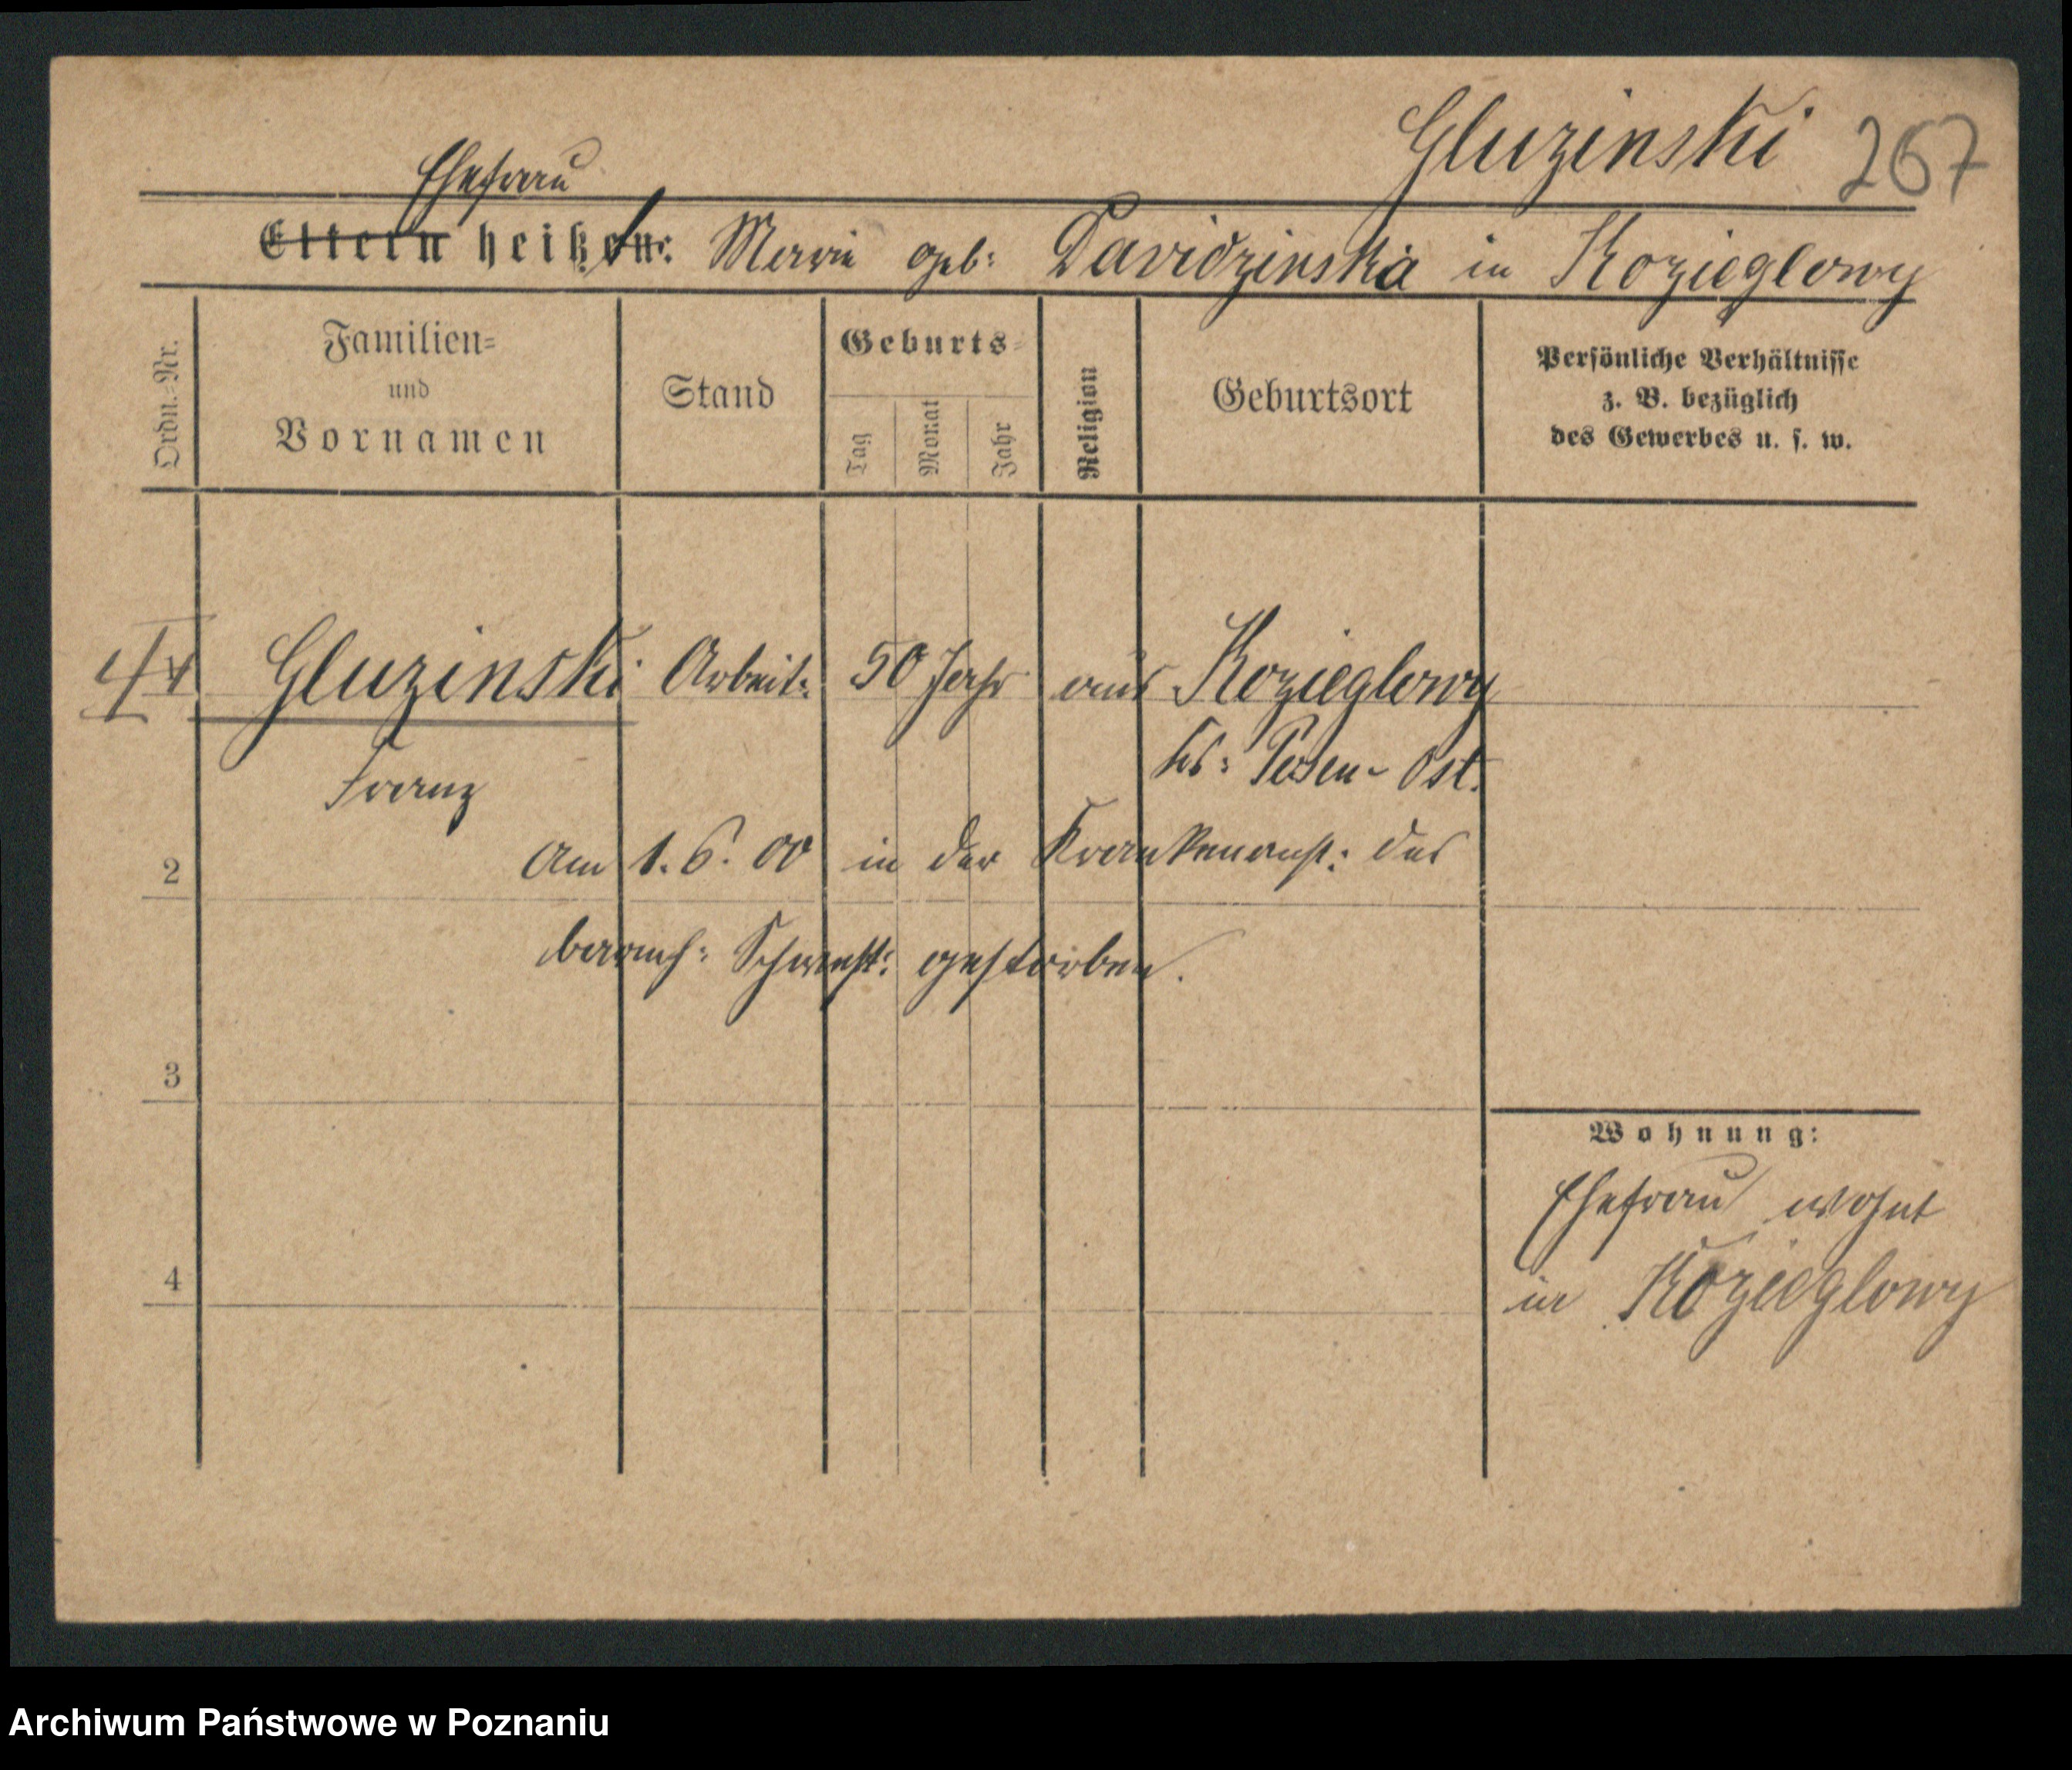 Gluzinski 267
Ehefrau
Eltern heißen: Marie geb: Davidzinska in Kozieglowy
Ordn.-Nr.
Familien-
und
Vornamen
Stand
Geburts-
Tag
Monat
Jahr
Religion
Geburtsort
Persönliche Verhältnisse
z. B. bezüglich
des Gewerbes u. s. w.
Gluzinski Arbeit: 50 Jahr aus Kozieglowy
Franz
Posen-Ost.
2
Am 1. 6. 00 in der Krankenanst: der
barmh: Schwest: gestorben.
3
Wohnung:
Ehefrau wohnt
4
in Kozieglowy
Archiwum Państwowe w Poznaniu